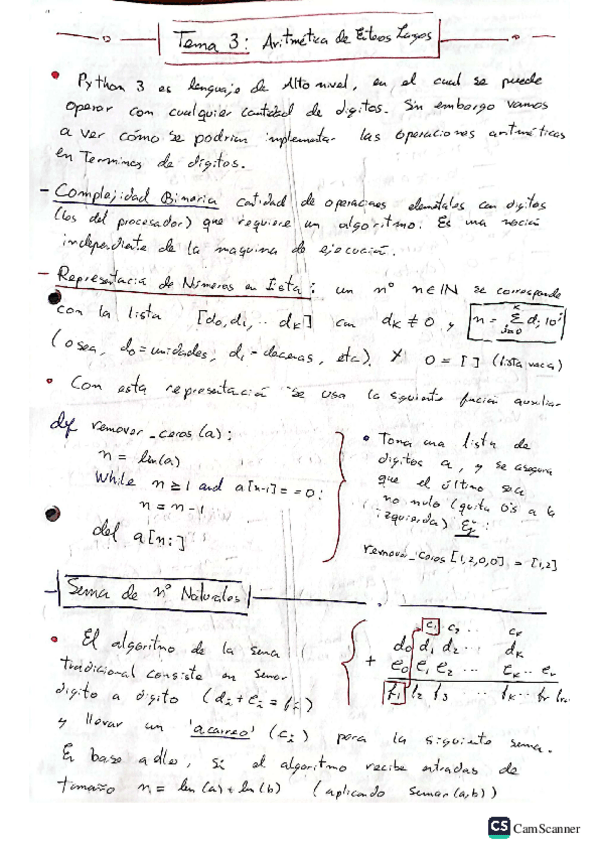 Tema 3: Aritmética de Enteros Largos
• Python 3 es lenguaje de Alto nivel, en el cual se puede
operar con cualquier cantidad de digitos. Sin embargo vamos
a ver cómo se podrian implementar las operaciones aritméticas
en Terminos de digitos.
- Complejidad Binaria cantidad de operaciones elementales con digitos
(los del procesador) que requiere un algoritmo. Es una noción
independiente de la maquina de ejecución.
- Representación de Números en Lista: un nº n∈ℕ se corresponde
con la lista [d0, d1, .. dK] con dK ≠ 0 y n = Σ(j=0..K) dj 10^j
(o sea, d0 = unidades, d1 = decenas, etc). Y 0 = [] (lista vacia)
• Con esta representación se usa la siguiente función auxiliar
def remover_ceros(a):
n = len(a)
While n ≥ 1 and a[n-1] == 0:
n = n-1
del a[n:]
• Toma una lista de
digitos a, y se asegura
que el último sea
no nulo (quita 0's a la
izquierda) Ej:
remover_ceros [1,2,0,0] = [1,2]
Suma de nº Naturales
• El algoritmo de la suma
tradicional consiste en sumar
digito a digito (di + ei = fi)
y llevar un 'acarreo' (ci) para la siguiente suma.
En base a ello, si el algoritmo recibe entradas de
tamaño n = len(a) + len(b) (aplicando sumar(a,b))
c1 c2 .. cr
d0 d1 d2 ... dK
+ e0 e1 e2 ... eK .. er
f1 f2 f3 ... fK .. fr
CS CamScanner